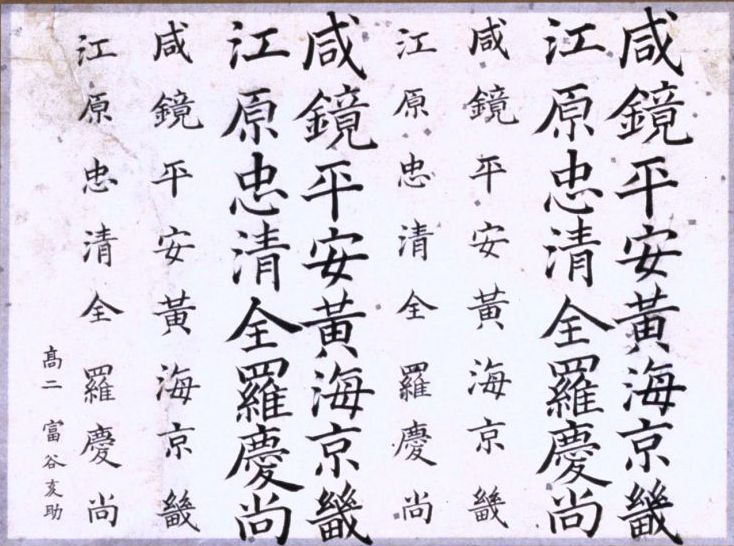 咸鏡平安黃海京畿
江原忠清全羅慶尚
咸鏡平安黃海京畿
江原忠清全羅慶尚
咸鏡平安黃海京畿
江原忠清全羅慶尚
咸鏡平安黃海京畿
江原忠清全羅慶尚
髙二 富谷亥助